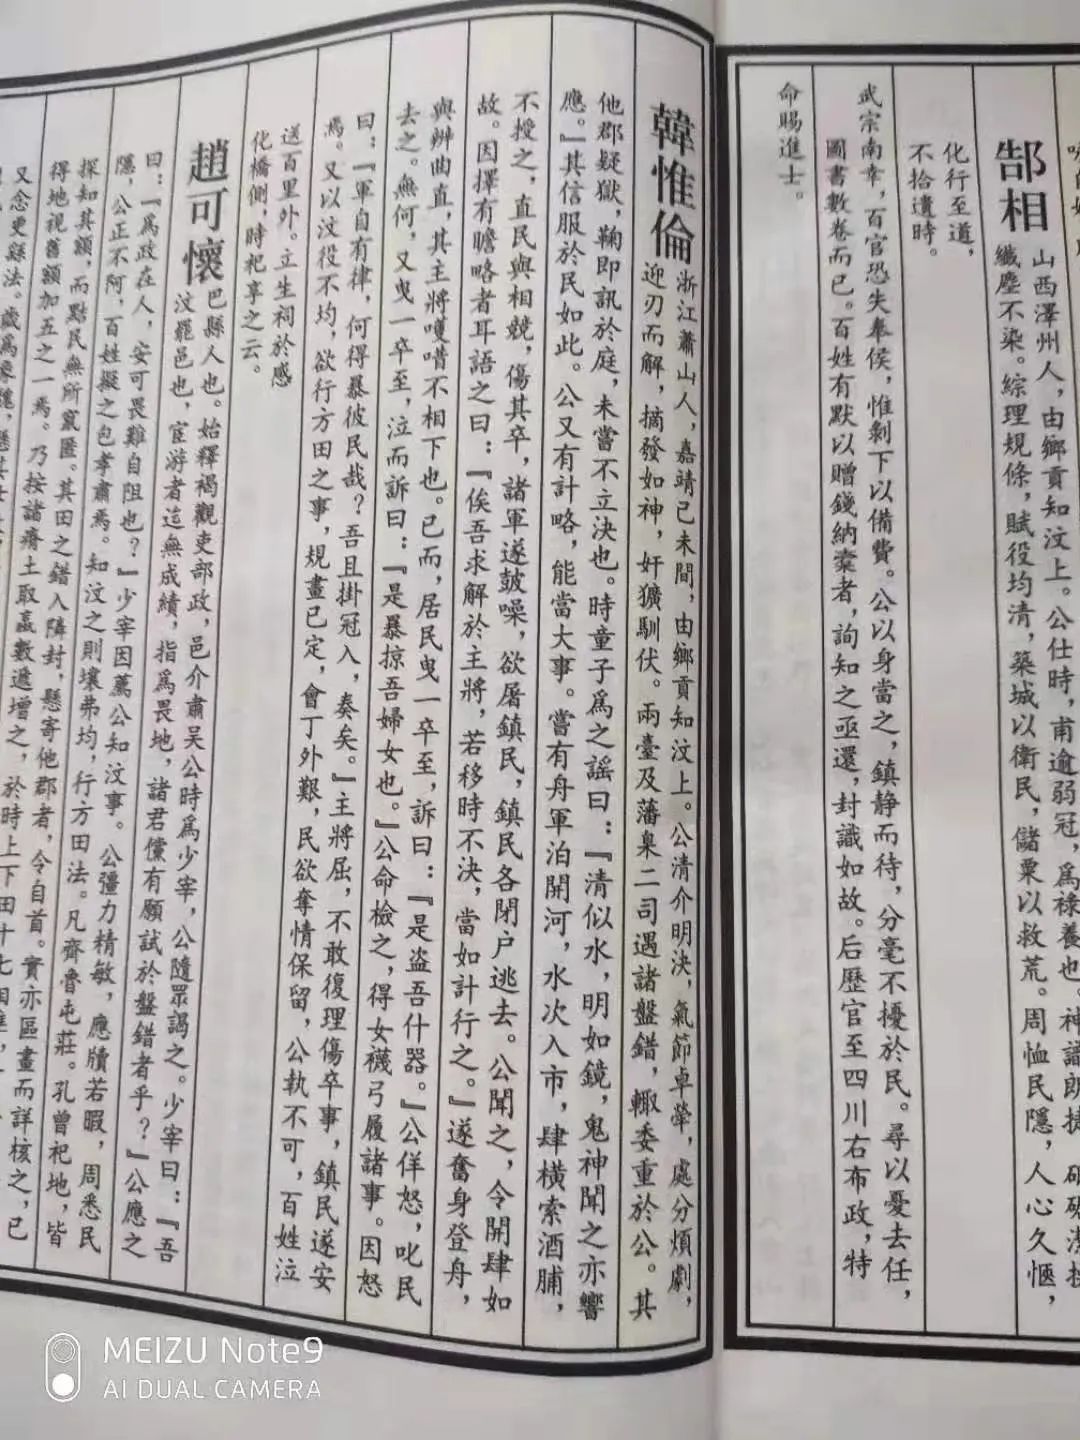 郜相
山西澤州人，由鄉貢知汶上。公仕時，甫逾弱冠，爲祿養也。神識朗捷，
纖塵不染。綜理規條，賦役均清，築城以衛民，儲粟以救荒。周恤民隱，人心久愜，
化行至道，
不拾遺時。
武宗南幸，百官恐失奉侯，惟剝下以備費。公以身當之，鎮静而待，分毫不擾於民。尋以憂去任，
圖書數卷而已。百姓有默以贈錢納橐者，詢知之亟還，封識如故。后歷官至四川右布政，特
命賜進士。
韓惟倫
浙江蕭山人，嘉靖己未間，由鄉貢知汶上。公清介明決，氣節卓犖，處分煩劇，
迎刃而解，摘發如神，奸獷馴伏。兩臺及藩臬二司遇諸盤錯，輙委重於公。其
他郡疑獄，鞠即訊於庭，未嘗不立決也。時童子爲之謡曰：『清似水，明如鏡，鬼神聞之亦響
應。』其信服於民如此。公又有計略，能當大事。嘗有舟軍泊開河，水次入市，肆橫索酒脯，
不授之，直民與相競，傷其卒，諸軍遂鼓噪，欲屠鎮民，鎮民各閉户逃去。公聞之，令開肆如
故。因擇有瞻略者耳語之曰：『俟吾求解於主將，若移時不決，當如計行之。』遂奮身登舟，
與辨曲直，其主將嘎唶不相下也。已而，居民曳一卒至，訴曰：『是盗吾什器。』公佯怒，叱民
去之。無何，又曳一卒至，泣而訴曰：『是暴掠吾婦女也。』公命檢之，得女襪弓履諸事。因怒
曰：『軍自有律，何得暴彼民哉？吾且掛冠入，奏矣。』主將屈，不敢復理傷卒事，鎮民遂安
焉。又以汶役不均，欲行方田之事，規畫已定，會丁外艱，民欲奪情保留，公執不可，百姓泣
送百里外。立生祠於感
化橋側，時祀享之云。
趙可懷
巴縣人也。始釋褐觀吏部政，邑介肅吴公時爲少宰，公隨眾謁之。少宰曰：『吾
汶罷邑也，宦游者迄無成績，指爲畏地，諸君儻有願試於盤錯者乎？』公應之
曰：『爲政在人，安可畏難自阻也？』少宰因薦公知汶事。公彊力精敏，應牘若暇，周悉民
隱，公正不阿，百姓擬之包孝肅焉。知汶之則壤弗均，行方田法。凡齊魯屯莊。孔曾祀地，皆
探知其額，而黠民無所竄匿。其田之錯入隣封，懸寄他郡者，令自首。實亦區畫而詳核之，已
得地視舊額加五之一焉。乃按諸瘠土取嬴數遞增之，於時上下田十七
又念更繇法。歲爲